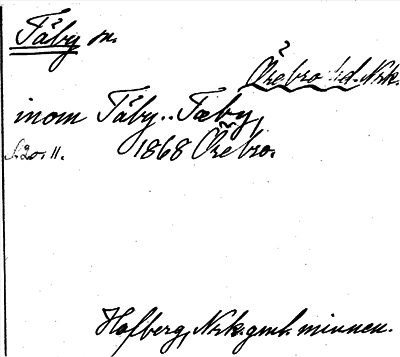 Täby sn.
Örebro hd. Nrk.
inom Täby.. Tæby,
s. 20. 11. 1868 Örebro.
Hofberg, Nrk. gml. minnen.